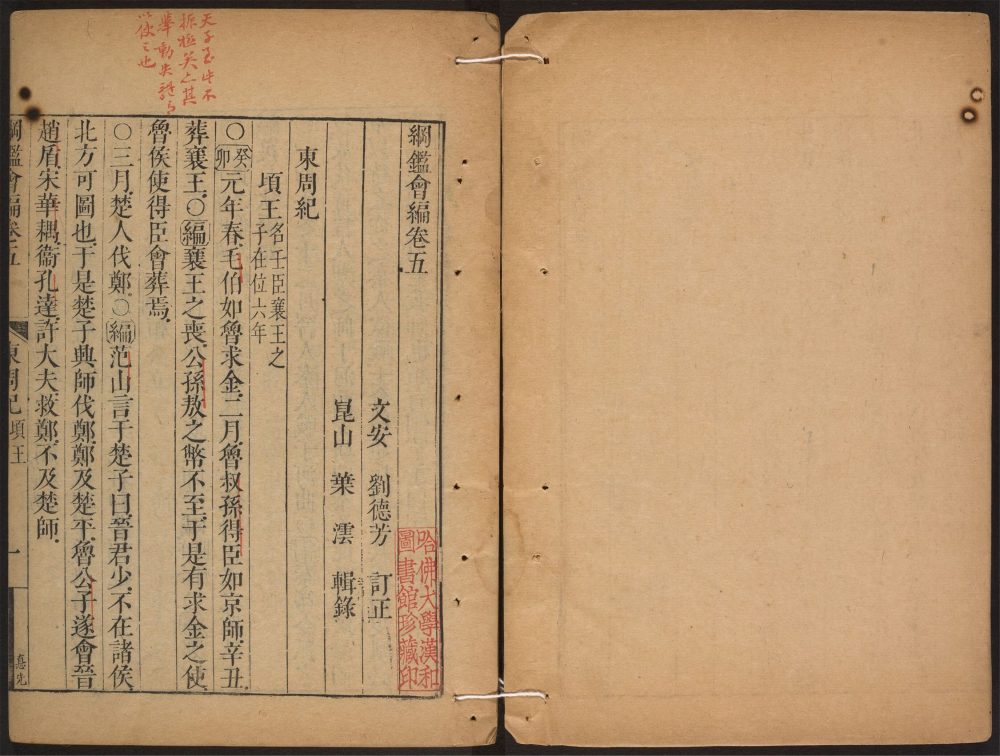 綱鑑會編卷五
文安 劉德芳 訂正
崑山 葉澐 輯錄
東周紀
頃王名壬臣襄王之
子在位六年
○癸卯元年春毛伯如魯求金二月魯叔孫得臣如京師辛丑
葬襄王○編襄王之喪公孫敖之幣不至于是有求金之使
魯侯使得臣會葬焉
○三月楚人伐鄭○編范山言于楚子曰晉君少不在諸侯
北方可圖也于是楚子興師伐鄭鄭及楚平魯公子遂會晉
趙盾宋華耦衞孔達許大夫救鄭不及楚師
綱鑑會編卷五 東周紀 頃王 一
天子至此不
振極矣亦其
舉動失體有
以使之也
哈佛大學漢和
圖書館珍藏印